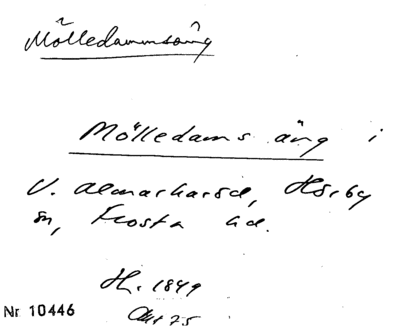 Mölledammsäng
Mölledams äng i
V. Almarharad, Hörby
sn, Frosta hd.
H. 1849
Akt 75
Nr 10446